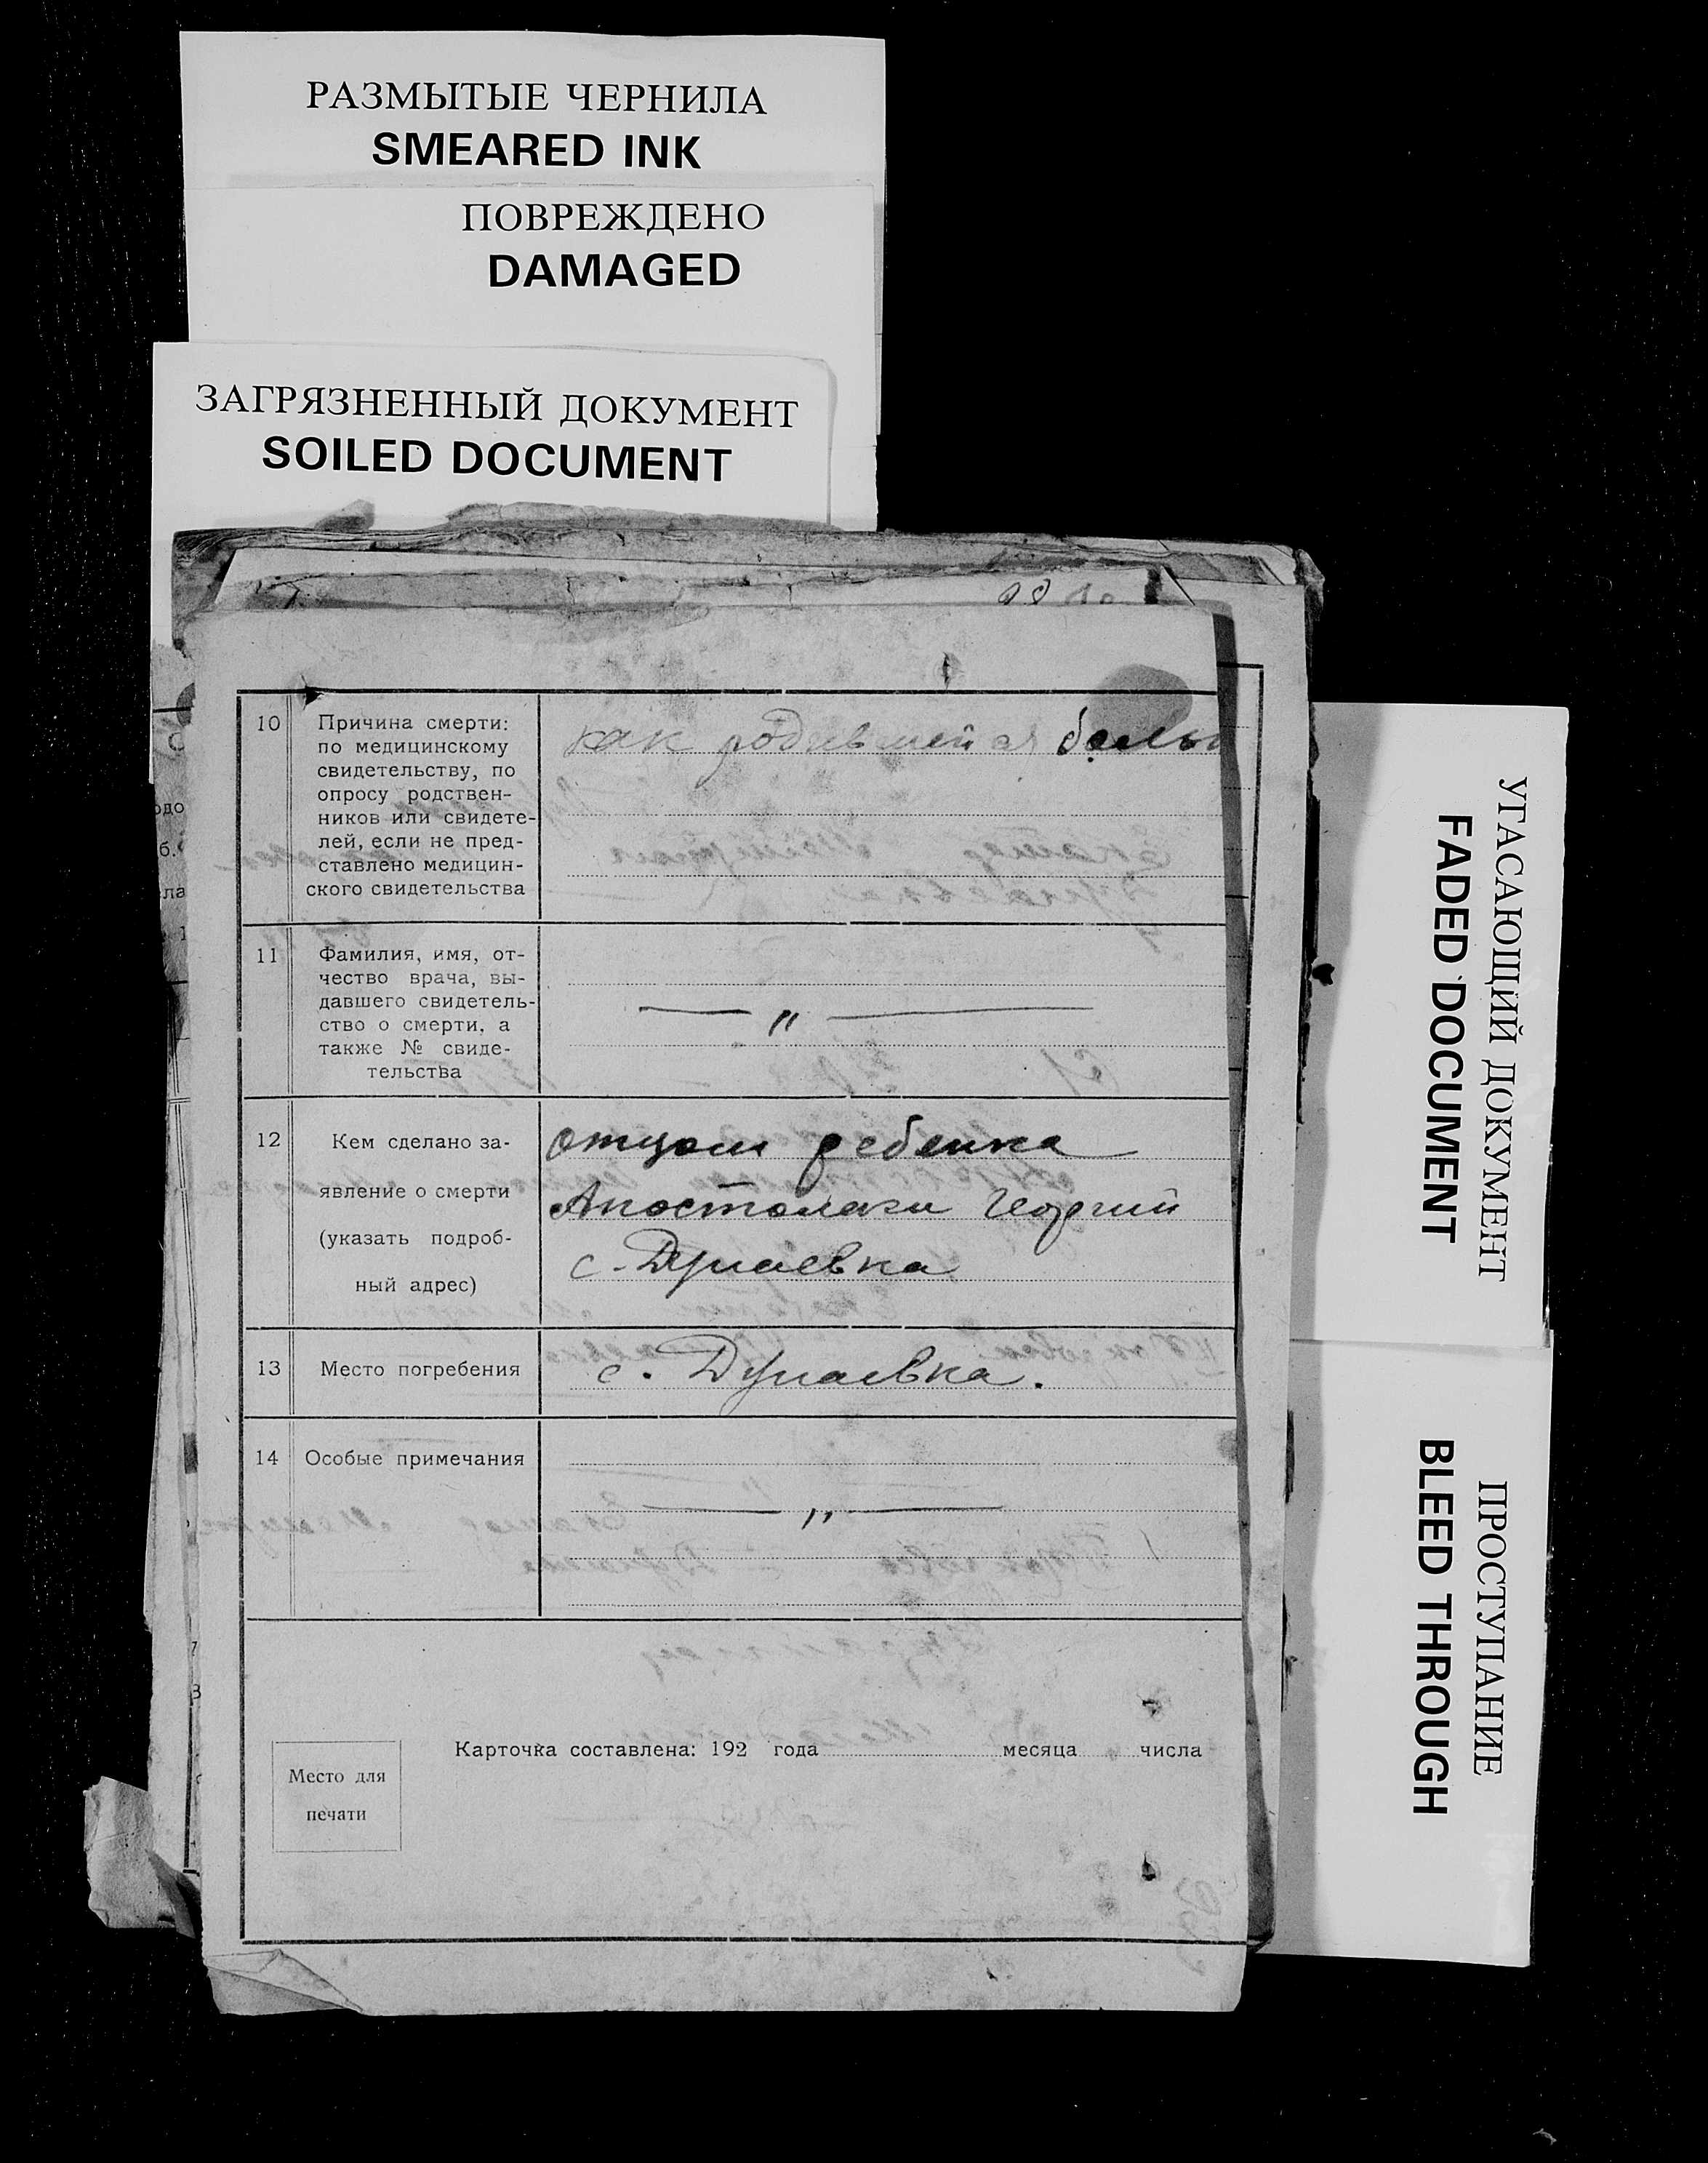 РАЗМЫТЫЕ ЧЕРНИЛА
SMEARED INK
ПОВРЕЖДЕНО
DAMAGED
ЗАГРЯЗНЕННЫЙ ДОКУМЕНТ
SOILED DOCUMENT
10
Причина смерти:
по медицинскому
свидетельству, по
опросу родствен-
ников или свидете-
лей, если не пред-
ставлено медицин-
ского свидетельства
как родившейся
11
Фамилия, имя, от-
чество врача, вы-
давшего свидетель-
ство о смерти, а
также № свиде-
тельства
— " —
12
Кем сделано за-
явление о смерти
(указать подроб-
ный адрес)
отцом ребенка
Апостолаки Георгий
с. Дунаевка
13
Место погребения
с. Дунаевка.
14
Особые примечания
— " —
Карточка составлена: 192 года месяца числа
Место для
печати
УГАСАЮЩИЙ ДОКУМЕНТ
FADED DOCUMENT
ПРОСТУПАНИЕ
BLEED THROUGH